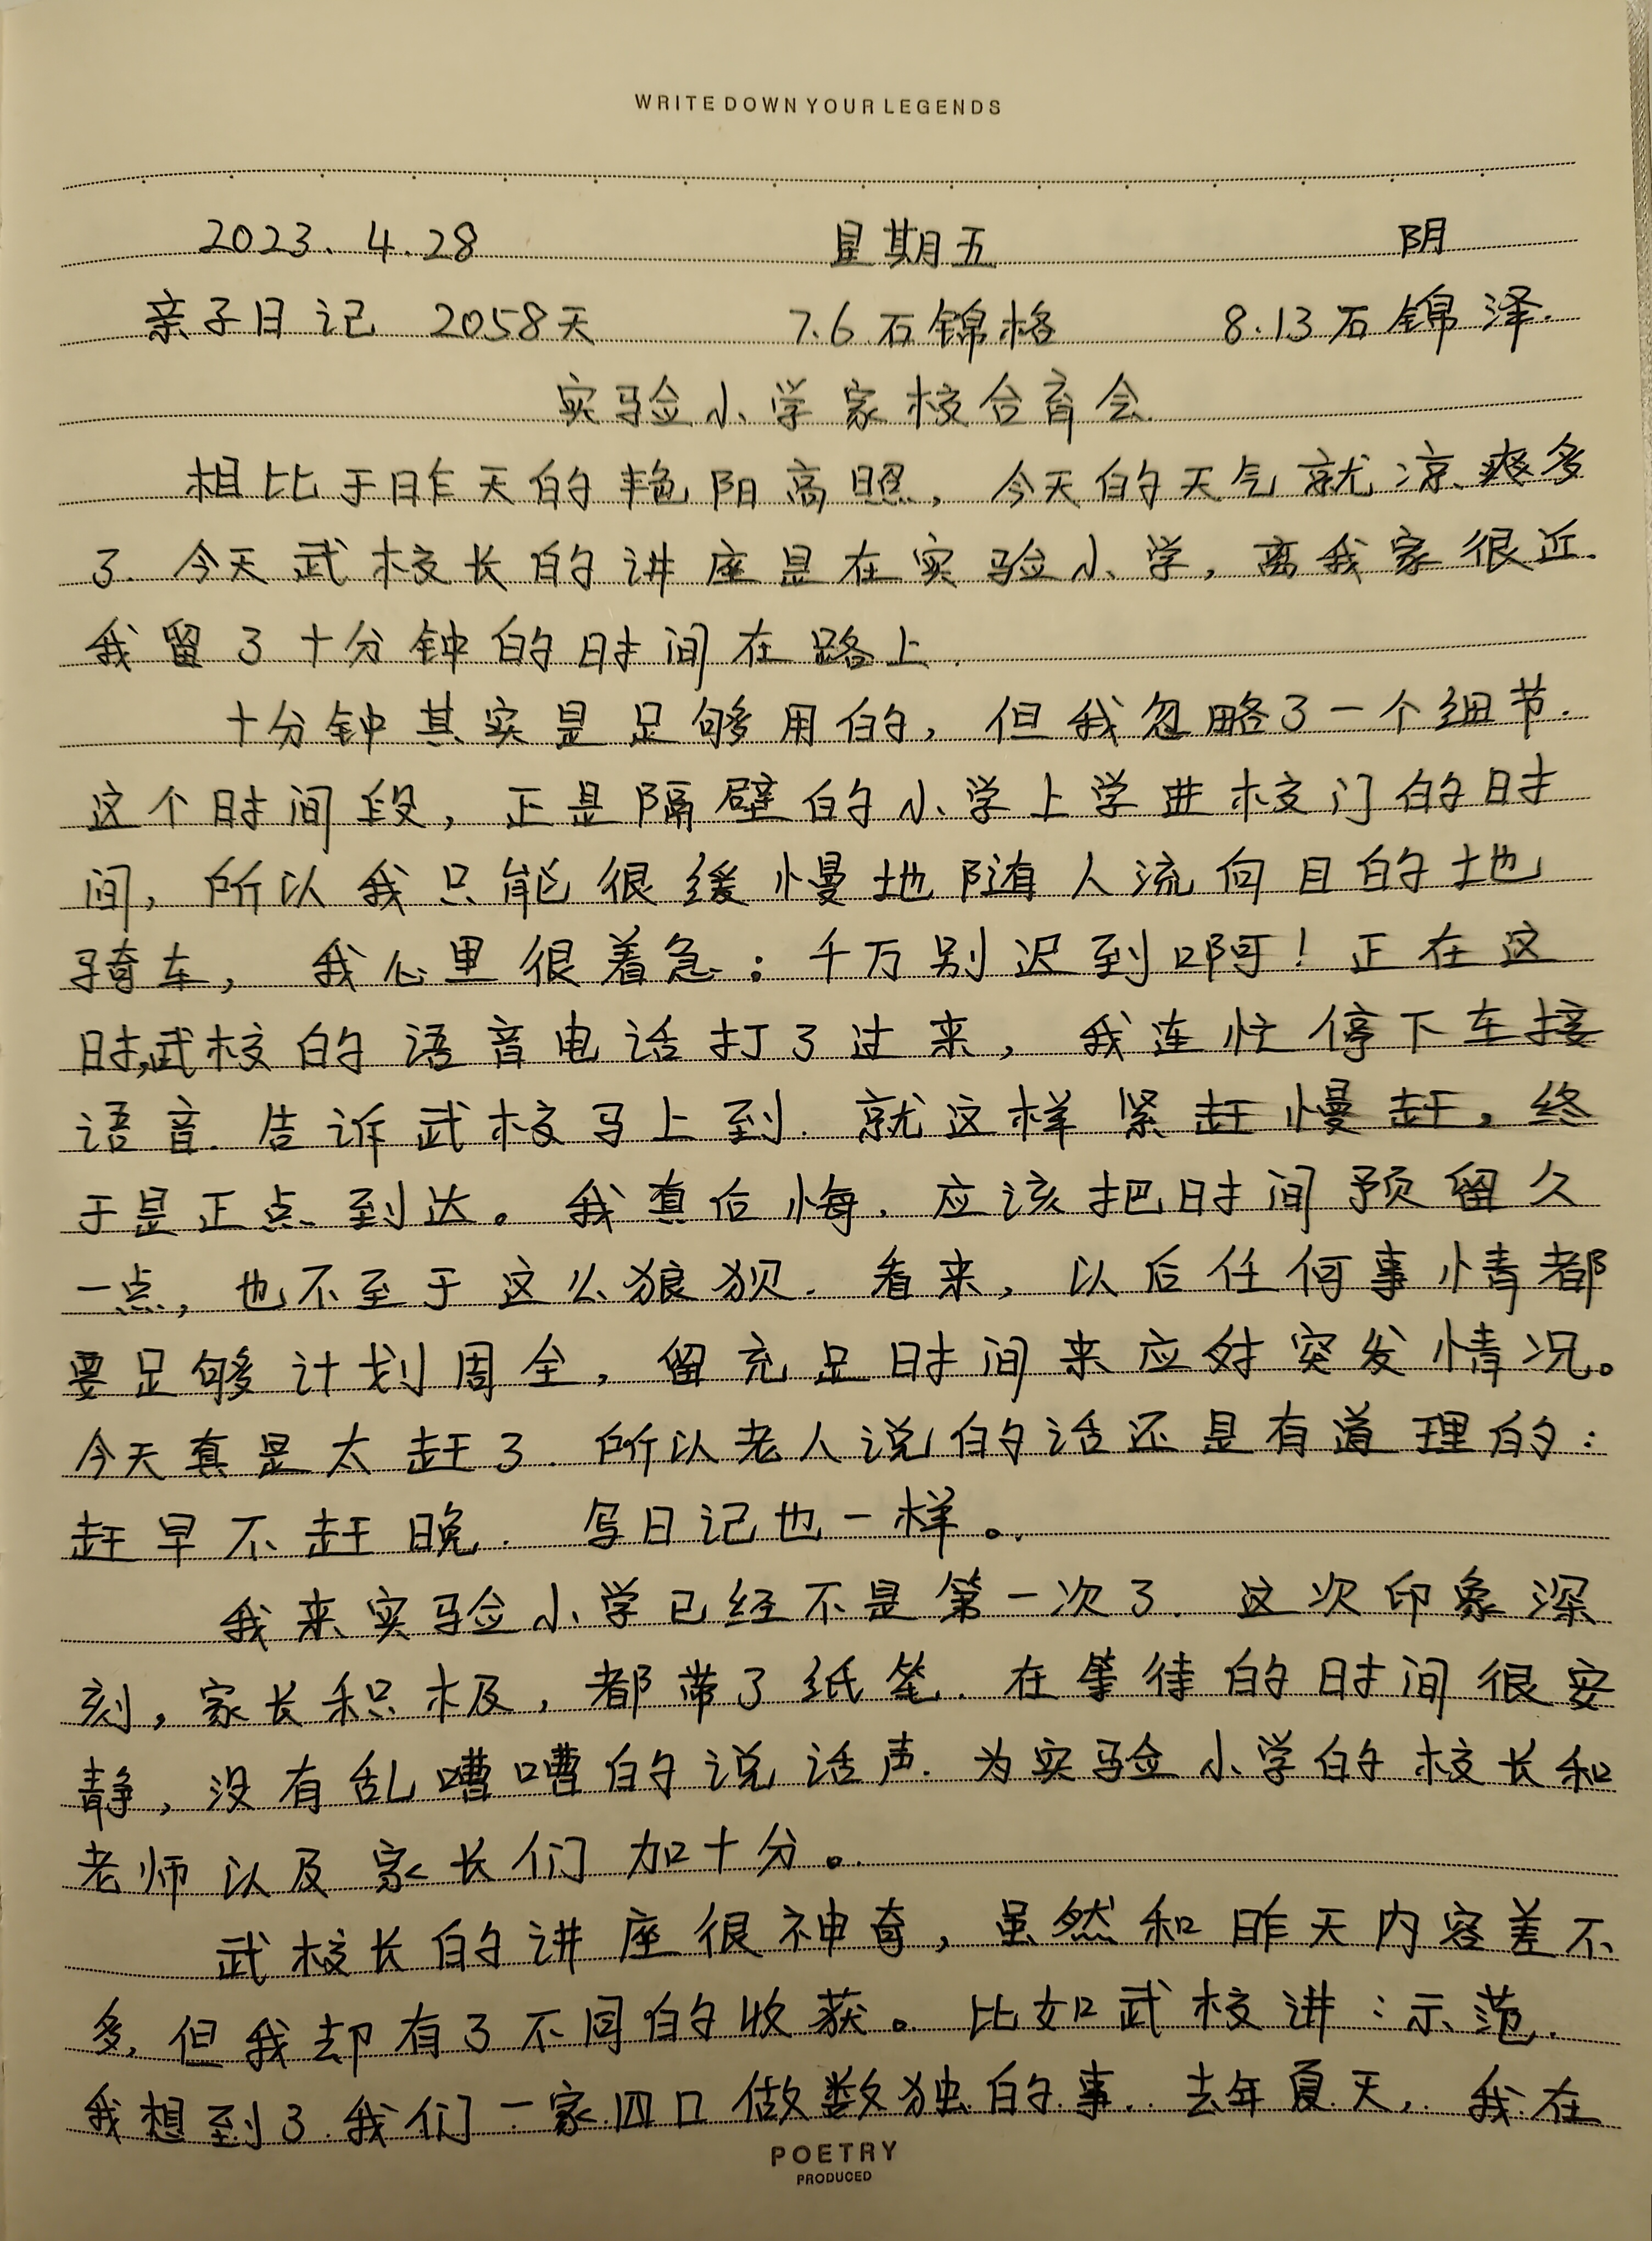 WRITE DOWN YOUR LEGENDS
2023.4.28 星期五 阴
亲子日记 2058天 7.6石锦格 8.13石锦泽.
实验小学家校合育会.
相比于昨天的艳阳高照，今天的天气就凉爽多
了.今天武校长的讲座是在实验小学，离我家很近.
我留了十分钟的时间在路上.
十分钟其实是足够用的，但我忽略了一个细节.
这个时间段，正是隔壁的小学上学进校门的时
间，所以我只能很缓慢地随人流向目的地
骑车，我心里很着急：千万别迟到啊！正在这
时,武校的语音电话打了过来，我连忙停下车接
语音.告诉武校马上到.就这样紧赶慢赶，终
于是正点到达。我真后悔.应该把时间预留久
一点，也不至于这么狼狈.看来，以后任何事情都
要足够计划周全，留充足时间来应对突发情况。
今天真是太赶了.所以老人说的话还是有道理的：
赶早不赶晚.写日记也一样。
我来实验小学已经不是第一次了.这次印象深
刻，家长积极，都带了纸笔.在等待的时间很安
静，没有乱嘈嘈的说话声.为实验小学的校长和
老师以及家长们加十分。
武校长的讲座很神奇，虽然和昨天内容差不
多,但我却有了不同的收获。比如武校讲：示范.
我想到了我们一家四口做数独的事.去年夏天,我在
POETRY
PRODUCED